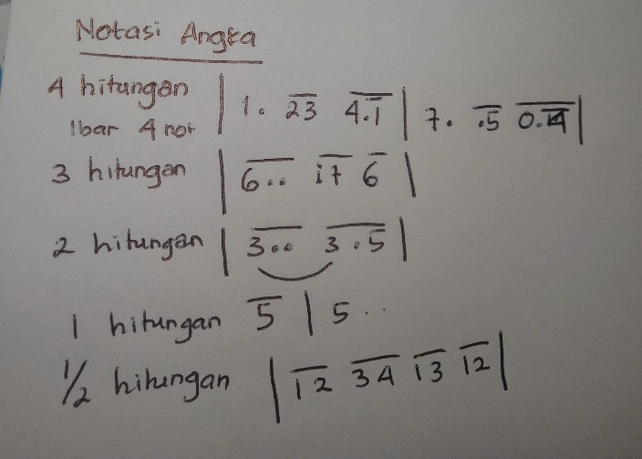 Notasi Angka
4 hitungan | 1. 23 4.1 | 7. .5 0.14 |
1bar 4 not
3 hitungan | 6.. i7 6 |
2 hitungan | 3.. 3.5 |
1 hitungan 5 | 5..
1/2 hitungan | 12 34 13 12 |